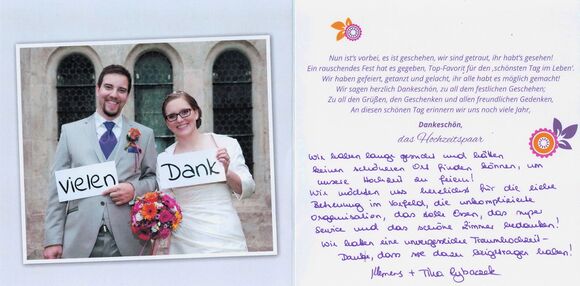 vielen
Dank
Nun ist's vorbei, es ist geschehen, wir sind getraut, ihr habt's gesehen!
Ein rauschendes Fest hat es gegeben, Top-Favorit für den ‚schönsten Tag im Leben'.
Wir haben gefeiert, getanzt und gelacht, ihr alle habt es möglich gemacht!
Wir sagen herzlich Dankeschön, zu all dem festlichen Geschehen;
Zu all den Grüßen, den Geschenken und allen freundlichen Gedenken,
An diesen schönen Tag erinnern wir uns noch viele Jahr,
Dankeschön,
das Hochzeitspaar
Wir haben lange gesucht und hätten
keinen schöneren Ort finden können, um
unsere Hochzeit zu feiern!
Wir möchten uns herzlichst für die liebe
Betreuung im Vorfeld, die unkomplizierte
Organisation, das tolle Essen, das super
Service und das schöne Zimmer bedanken!
Wir hatten eine unvergessliche Traumhochzeit-
Danke, dass sie dazu beigetragen haben!
Klemens + Tina